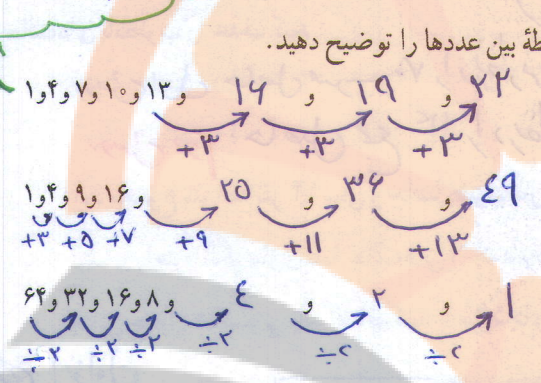 طهٔ بین عددها را توضیح دهید.
۱و۴و۷و۱۰و۱۳ و ۱۶ و ۱۹ و ۲۲
+۳ +۳ +۳
۱و۴و۹و۱۶ و ۲۵ و ۳۶ و ۴۹
+۳ +۵ +۷ +۹ +۱۱ +۱۳
۶۴و۳۲و۱۶و۸ و ۴ و ۲ و ۱
÷۲ ÷۲ ÷۲ ÷۲ ÷۲ ÷۲